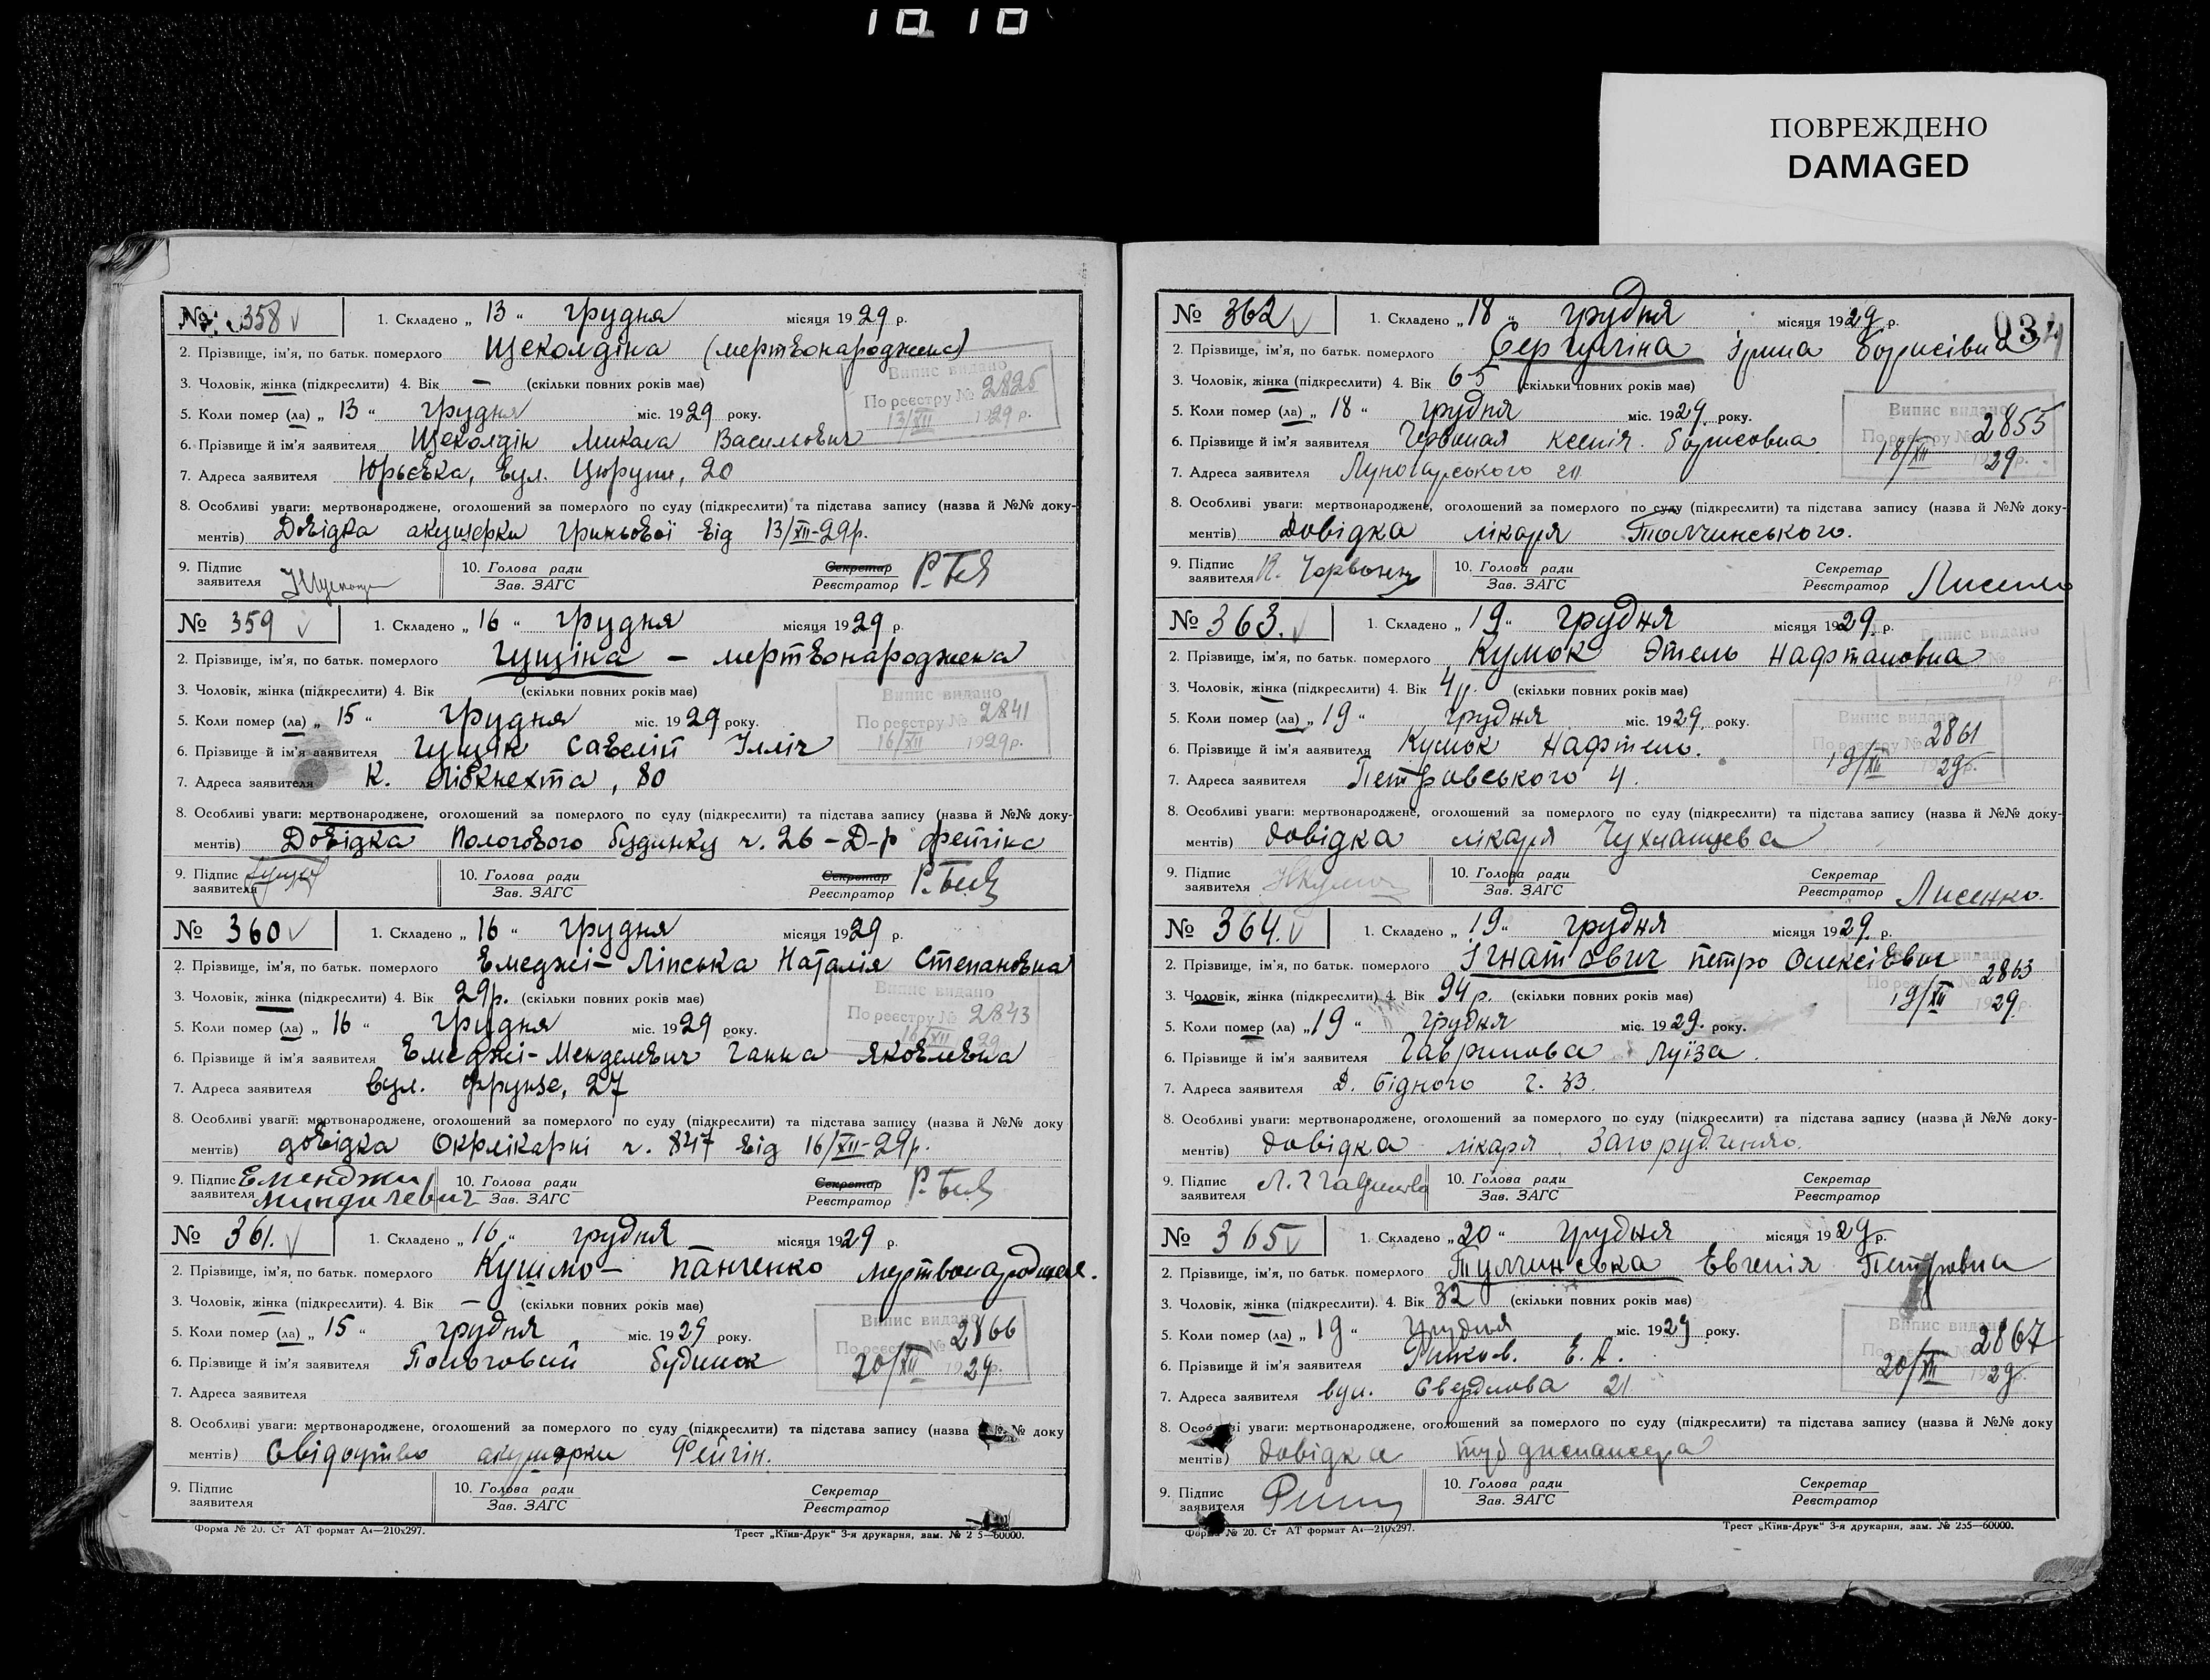 ПОВРЕЖДЕНО
DAMAGED
№ 358 1. Складено „ 13 “ грудня місяця 1929 р.
2. Прізвище, ім'я, по батьк. померлого Щеколдіна (мертвонароджена)
3. Чоловік, жінка (підкреслити) 4. Вік — (скільки повних років має)
Випис видано
По реєстру № 2825
13/XII 1929 р.
5. Коли помер (ла) „ 13 “ грудня міс. 1929 року.
6. Прізвище й ім'я заявителя Щеколдін Микола Васильович
7. Адреса заявителя Юрьєвка, вул. Цюрупи, 20
8. Особливі уваги: мертвонароджене, оголошений за померлого по суду (підкреслити) та підстава запису (назва й №№ доку-
ментів) Довідка акушерки Гриньової від 13/XII-29р.
9. Підпис заявителя 10. Голова ради Зав. ЗАГС Секретар Реєстратор
№ 359 1. Складено „ 16 “ грудня місяця 1929 р.
2. Прізвище, ім'я, по батьк. померлого Гущіна — мертвонароджена
3. Чоловік, жінка (підкреслити) 4. Вік (скільки повних років має)
Випис видано
По реєстру № 2841
16/XII 1929 р.
5. Коли помер (ла) „ 15 “ грудня міс. 1929 року.
6. Прізвище й ім'я заявителя Гущин Савелій Ілліч
7. Адреса заявителя К. Лібкнехта, 80
8. Особливі уваги: мертвонароджене, оголошений за померлого по суду (підкреслити) та підстава запису (назва й №№ доку-
ментів) Довідка Пологового будинку ч. 26 – Д-р Фейгіна
9. Підпис заявителя 10. Голова ради Зав. ЗАГС Секретар Реєстратор
№ 360 1. Складено „ 16 “ грудня місяця 1929 р.
2. Прізвище, ім'я, по батьк. померлого Емеджі – Ліпська Наталія Степановна
3. Чоловік, жінка (підкреслити) 4. Вік 29р. (скільки повних років має)
Випис видано
По реєстру № 2843
16/XII 29
5. Коли помер (ла) „ 16 “ грудня міс. 1929 року.
6. Прізвище й ім'я заявителя Емеджі-Менделевич Ганна Яковлевна
7. Адреса заявителя вул. Фрунзе, 27
8. Особливі уваги: мертвонароджене, оголошений за померлого по суду (підкреслити) та підстава запису (назва й №№ доку
ментів) довідка Окрлікарні ч. 847 від 16/XII-29р.
9. Підпис заявителя Еменджи Миндилевич 10. Голова ради Зав. ЗАГС Секретар Реєстратор
№ 361. 1. Складено „ 16 “ грудня місяця 1929 р.
2. Прізвище, ім'я, по батьк. померлого Панченко
3. Чоловік, жінка (підкреслити). 4. Вік — (скільки повних років має)
Випис видано
По реєстру № 2866
20/XII 1929р.
5. Коли помер (ла) „ 15 “ грудня міс. 1929 року.
6. Прізвище й ім'я заявителя Пологовий будинок
7. Адреса заявителя
8. Особливі уваги: мертвонароджене, оголошений за померлого по суду (підкреслити) та підстава запису (назва № доку
ментів) Свідоцтво акушерки Фейгін.
9. Підпис заявителя 10. Голова ради Зав. ЗАГС Секретар Реєстратор
Форма № 20. Ст АТ формат А4—210х297. Трест „Київ-Друк“ 3-я друкарня, зам. № 2 5—60000.
034
№ 362 1. Складено „ 18 “ грудня місяця 1929 р.
2. Прізвище, ім'я, по батьк. померлого Ірина Борисівна
3. Чоловік, жінка (підкреслити) 4. Вік 65 (скільки повних років має)
Випис видано
По реєстру № 2855
18/XII 1929 р.
5. Коли помер (ла) „ 18 “ грудня міс. 1929 року.
6. Прізвище й ім'я заявителя Червоная Ксенія Борисовна
7. Адреса заявителя Луначарського
8. Особливі уваги: мертвонароджене, оголошений за померлого по суду (підкреслити) та підстава запису (назва й №№ доку-
ментів) довідка лікаря Толчинського.
9. Підпис заявителя 10. Голова ради Зав. ЗАГС Секретар Реєстратор Лисенко
№ 363. 1. Складено „ 19 “ грудня місяця 1929. р.
2. Прізвище, ім'я, по батьк. померлого Кумок Этель Нафталовна
3. Чоловік, жінка (підкреслити) 4. Вік 4р. (скільки повних років має)
Випис видано
По реєстру № 2861
19/XII 1929р.
5. Коли помер (ла) „ 19 “ грудня міс. 1929. року.
6. Прізвище й ім'я заявителя Кумок
7. Адреса заявителя Петровського 4.
8. Особливі уваги: мертвонароджене, оголошений за померлого по суду (підкреслити) та підстава запису (назва й №№ доку-
ментів) довідка лікаря
9. Підпис заявителя 10. Голова ради Зав. ЗАГС Секретар Реєстратор Лисенко.
№ 364. 1. Складено „ 19 “ грудня місяця 1929. р.
2. Прізвище, ім'я, по батьк. померлого Ігнатович Петро Олексієвич
3. Чоловік, жінка (підкреслити) 4. Вік 94р. (скільки повних років має)
2863
19/XII 1929 р.
5. Коли помер (ла) „ 19 “ грудня міс. 1929. року.
6. Прізвище й ім'я заявителя Гаврилова Луїза.
7. Адреса заявителя Д. Бідного ч. 33.
8. Особливі уваги: мертвонароджене, оголошений за померлого по суду (підкреслити) та підстава запису (назва й №№ доку-
ментів) довідка лікаря
9. Підпис заявителя 10. Голова ради Зав. ЗАГС Секретар Реєстратор
№ 365 1. Складено „ 20 “ грудня місяця 1929 р.
2. Прізвище, ім'я, по батьк. померлого Тулчинська Евгенія Петровна
3. Чоловік, жінка (підкреслити). 4. Вік 32 (скільки повних років має)
Випис видано
2867
20/XII 1929р.
5. Коли помер (ла) „ 19 “ грудня міс. 1929 року.
6. Прізвище й ім'я заявителя Е. А.
7. Адреса заявителя вул. Свердлова 21
8. Особливі уваги: мертвонароджене, оголошений за померлого по суду (підкреслити) та підстава запису (назва й №№ доку
ментів) довідка тубдиспансера
9. Підпис заявителя 10. Голова ради Зав. ЗАГС Секретар Реєстратор
Форма № 20. Ст АТ формат А4—210х297. Трест „Київ-Друк“ 3-я друкарня, зам. № 255—60000.